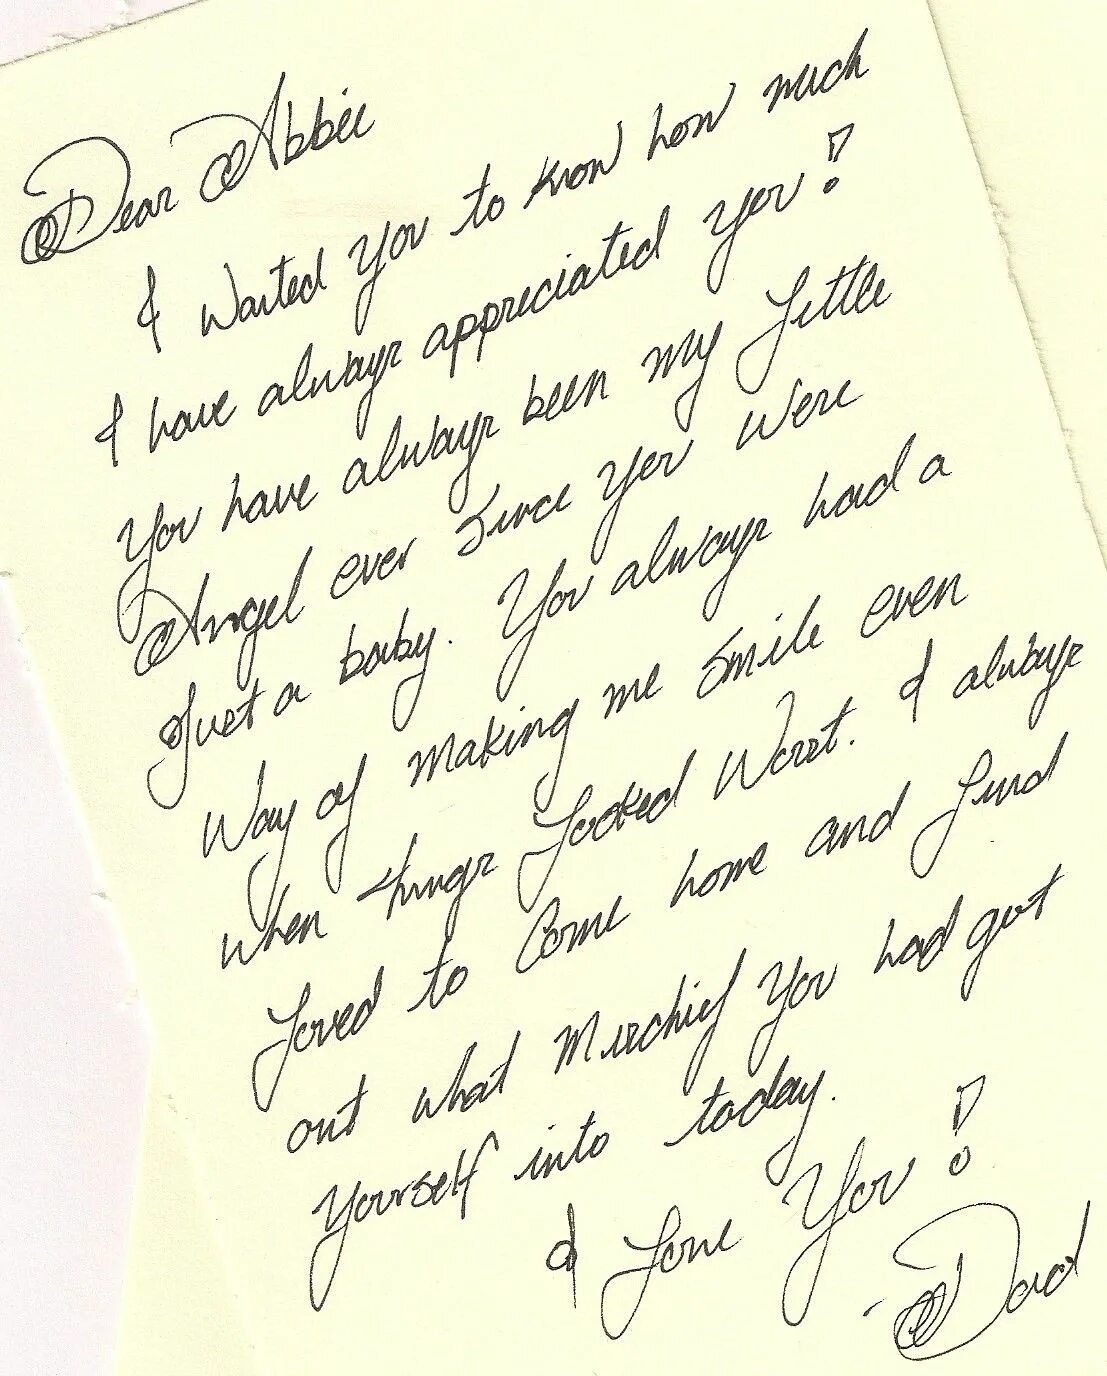 Dear Abbie
I wanted You to know how much
I have always appreciated You!
You have always been my Little
Angel ever Since You Were
Just a baby. You always had a
Way of making me smile even
when things Looked Worst. I always
Loved to Come home and find
out what Mischief You had got
Yourself into today.
I Love You!
-Dad